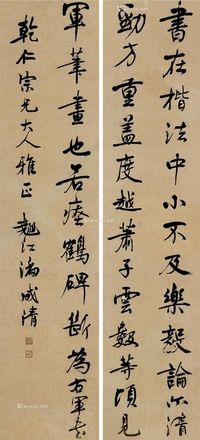 書在楷法中小不及樂毅論尒清
勁方重蓋度越蕭子雲數等頃見
軍筆畫也若瘞鶴碑斷為右軍書
乾仁宗兄大人雅正 江潘成清